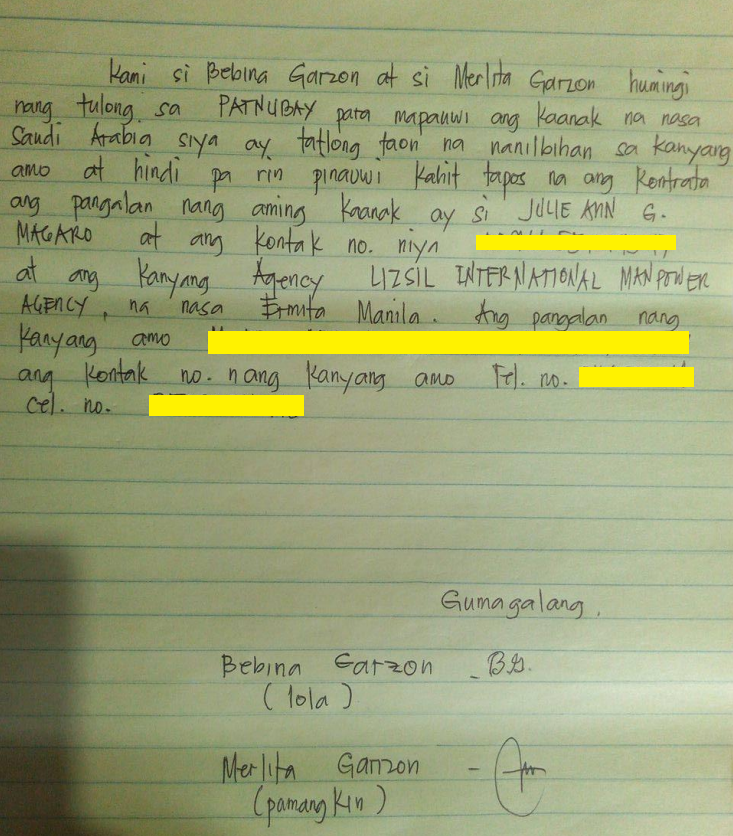 Kami si Bebina Garzon at si Merlita Garzon humingi
nang tulong sa PATNUBAY para mapauwi ang kaanak na nasa
Saudi Arabia siya ay tatlong taon na nanilbihan sa kanyang
amo at hindi pa rin pinauwi kahit tapos na ang kontrata
ang pangalan nang aming kaanak ay si JULIE ANN G.
MAGARO at ang kontak no. niya
at ang kanyang Agency LIZSIL INTERNATIONAL MANPOWER
AGENCY, na nasa Ermita Manila. Ang pangalan nang
kanyang amo
ang kontak no. nang kanyang amo Tel. no.
Cel. no.
Gumagalang,
Bebina Garzon - B.G.
(lola)
Merlita Garzon -
(pamangkin)